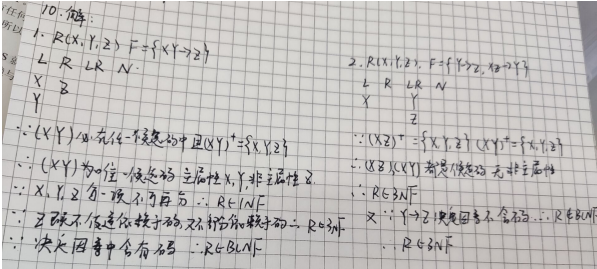 10.解:
1. R(X,Y,Z) F={XY→Z}
L R LR N
X Z
Y
∵(XY)必在任一候选码中且(XY)⁺={X,Y,Z}
∴(XY)为唯一候选码 主属性X,Y,非主属性Z.
∵X,Y,Z每一项不可再分 ∴R∈1NF
∵Z既不传递依赖于码,又不部分依赖于码∴R∈3NF
∵决定因素中含有码 ∴R∈BCNF
2. R(X,Y,Z). F={Y→Z, XZ→Y}
L R LR N
X Y
Z
∵(XZ)⁺={X,Y,Z} (XY)⁺={X,Y,Z}
∴(XZ)(XY)都是候选码 无非主属性
∴R∈3NF
又∵Y→Z决定因素不含码∴R∉BCNF
∴R∈3NF